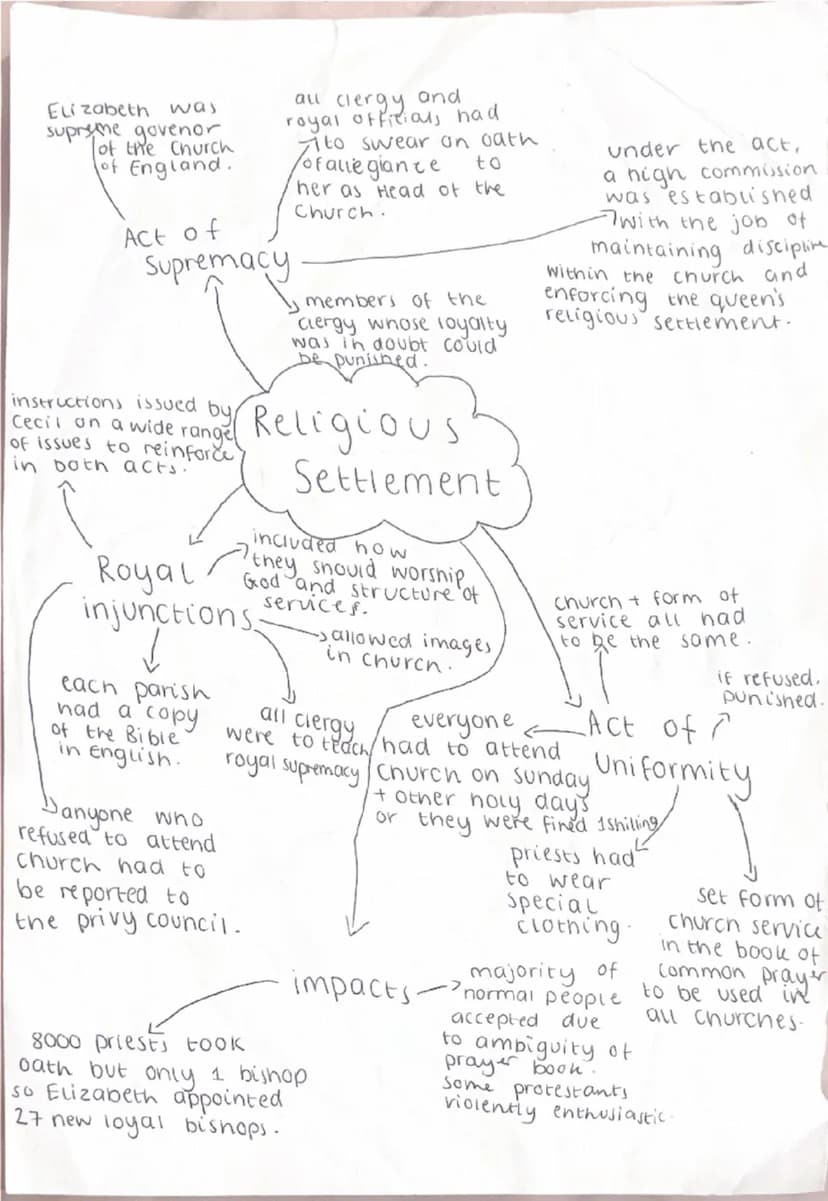 Elizabeth was
supreme govenor
of the Church
of England.
all clergy and
royal officials had
to swear an oath
of allegiance to
her as Head of the
Church.
under the act,
a high commission
was established
with the job of
maintaining discipline
within the church and
enforcing the queen's
religious settlement.
Act of
Supremacy
members of the
clergy whose loyalty
was in doubt could
be punished.
Religious
Settlement
instructions issued by
Cecil on a wide range
of issues to reinforce
in both acts.
Royal
injunctions
included how
they should worship
God and structure of
services.
allowed images
in church.
each parish
had a copy
of the Bible
in English.
all clergy
were to teach
royal supremacy
anyone who
refused to attend
church had to
be reported to
the privy council.
church + form of
service all had
to be the same.
if refused,
punished.
Act of
Uniformity
everyone
had to attend
church on Sunday
+ other holy days
or they were fined 1shilling
priests had
to wear
special
clothing.
set form of
church service
in the book of
common prayer
to be used in
all churches.
impacts
majority of
normal people
accepted due
to ambiguity of
prayer book.
some protestants
violently enthusiastic.
8000 priests took
oath but only 1 bishop
so Elizabeth appointed
27 new loyal bishops.